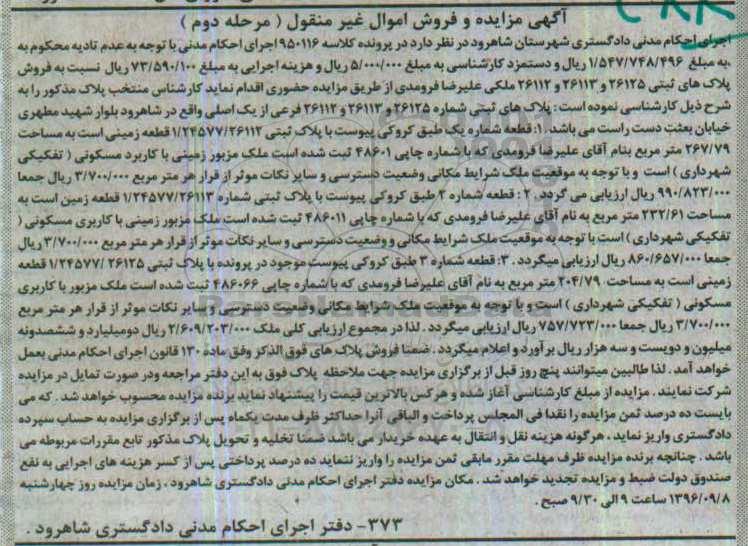 آگهی مزایده و فروش اموال غیر منقول ( مرحله دوم )
اجرای احکام مدنی دادگستری شهرستان شاهرود در نظر دارد در پرونده کلاسه ۹۵۰۱۱۶ اجرای احکام مدنی با توجه به عدم تادیه محکوم به
،به مبلغ ۱/۵۴۷/۷۴۸/۴۹۶ ریال و دستمزد کارشناسی به مبلغ ۵/۰۰۰/۰۰۰ ریال و هزینه اجرایی به مبلغ ۷۳/۵۹۰/۱۰۰ ریال نسبت به فروش
پلاک های ثبتی ۲۶۱۲۵ و ۲۶۱۱۳ و ۲۶۱۱۲ ملکی علیرضا فرومدی از طریق مزایده حضوری اقدام نماید کارشناس منتخب پلاک مذکور را به
شرح ذیل کارشناسی نموده است : پلاک های ثبتی شماره ۲۶۱۲۵ و ۲۶۱۱۳ و ۲۶۱۱۲ فرعی از یک اصلی واقع در شاهرود بلوار شهید مطهری
خیابان بعثت دست راست می باشد . ۱: قطعه شماره یک طبق کروکی پیوست با پلاک ثبتی ۱/۲۴۵۷۷/۲۶۱۱۲ قطعه زمینی است به مساحت
۲۶۷/۷۹ متر مربع بنام آقای علیرضا فرومدی که با شماره چاپی ۴۸۶۰۱ ثبت شده است ملک مزبور زمینی با کاربرد مسکونی ( تفکیکی
شهرداری ) است و با توجه به موقعیت ملک شرایط مکانی وضعیت دسترسی و سایر نکات موثر از قرار هر متر مربع ۳/۷۰۰/۰۰۰ ریال جمعا
۹۹۰/۸۲۳/۰۰۰ ریال ارزیابی می گردد . ۲ : قطعه شماره ۲ طبق کروکی پیوست با پلاک ثبتی شماره ۱/۲۴۵۷۷/۲۶۱۱۳ قطعه زمین است به
مساحت ۲۳۲/۶۱ متر مربع به نام آقای علیرضا فرومدی که با شماره چاپی ۴۸۶۰۱۱ ثبت شده است ملک مزبور زمینی با کاربری مسکونی (
تفکیکی شهرداری ) است با توجه به موقعیت ملک شرایط مکانی و وضعیت دسترسی و سایر نکات موثر از قرار هر متر مربع ۳/۷۰۰/۰۰۰ ریال
جمعا ۸۶۰/۶۵۷/۰۰۰ ریال ارزیابی میگردد . ۳: قطعه شماره ۳ طبق کروکی پیوست موجود در پرونده با پلاک ثبتی ۲۶۱۲۵ /۱/۲۴۵۷۷ قطعه
زمینی است به مساحت ۲۰۴/۷۹ متر مربع به نام آقای علیرضا فرومدی که با شماره چاپی ۴۸۶۰۶۶ ثبت شده است ملک مزبور با کاربری
مسکونی ( تفکیکی شهرداری ) است و با توجه به موقعیت ملک شرایط مکانی وضعیت دسترسی و سایر نکات موثر از قرار هر متر مربع
۳/۷۰۰/۰۰۰ ریال جمعا ۷۵۷/۷۲۳/۰۰۰ ریال ارزیابی میگردد . لذا در مجموع ارزیابی کلی ملک ۲/۶۰۹/۲۰۳/۰۰۰ ریال دومیلیارد و ششصدونه
میلیون و دویست و سه هزار ریال برآورد و اعلام میگردد . ضمنا فروش پلاک های فوق الذکر وفق ماده ۱۳۰ قانون اجرای احکام مدنی بعمل
خواهد آمد . لذا طالبین میتوانند پنج روز قبل از برگزاری مزایده جهت ملاحظه پلاک فوق به این دفتر مراجعه ودر صورت تمایل در مزایده
شرکت نمایند . مزایده از مبلغ کارشناسی آغاز شده و هرکس بالاترین قیمت را پیشنهاد نماید برنده مزایده محسوب خواهد شد . که می
بایست ده درصد ثمن مزایده را نقدا فی المجلس پرداخت و الباقی آنرا حداکثر ظرف مدت یکماه پس از برگزاری مزایده به حساب سپرده
دادگستری واریز نماید ، هرگونه هزینه نقل و انتقال به عهده خریدار می باشد ضمنا تخلیه و تحویل پلاک مذکور تابع مقررات مربوطه می
باشد . چنانچه برنده مزایده ظرف مهلت مقرر مابقی ثمن مزایده را واریز ننماید ده درصد پرداختی پس از کسر هزینه های اجرایی به نفع
صندوق دولت ضبط و مزایده تجدید خواهد شد . مکان مزایده دفتر اجرای احکام مدنی دادگستری شاهرود ، زمان مزایده روز چهارشنبه
۱۳۹۶/۰۹/۸ ساعت ۹ الی ۹/۳۰ صبح .
۳۷۳- دفتر اجرای احکام مدنی دادگستری شاهرود .